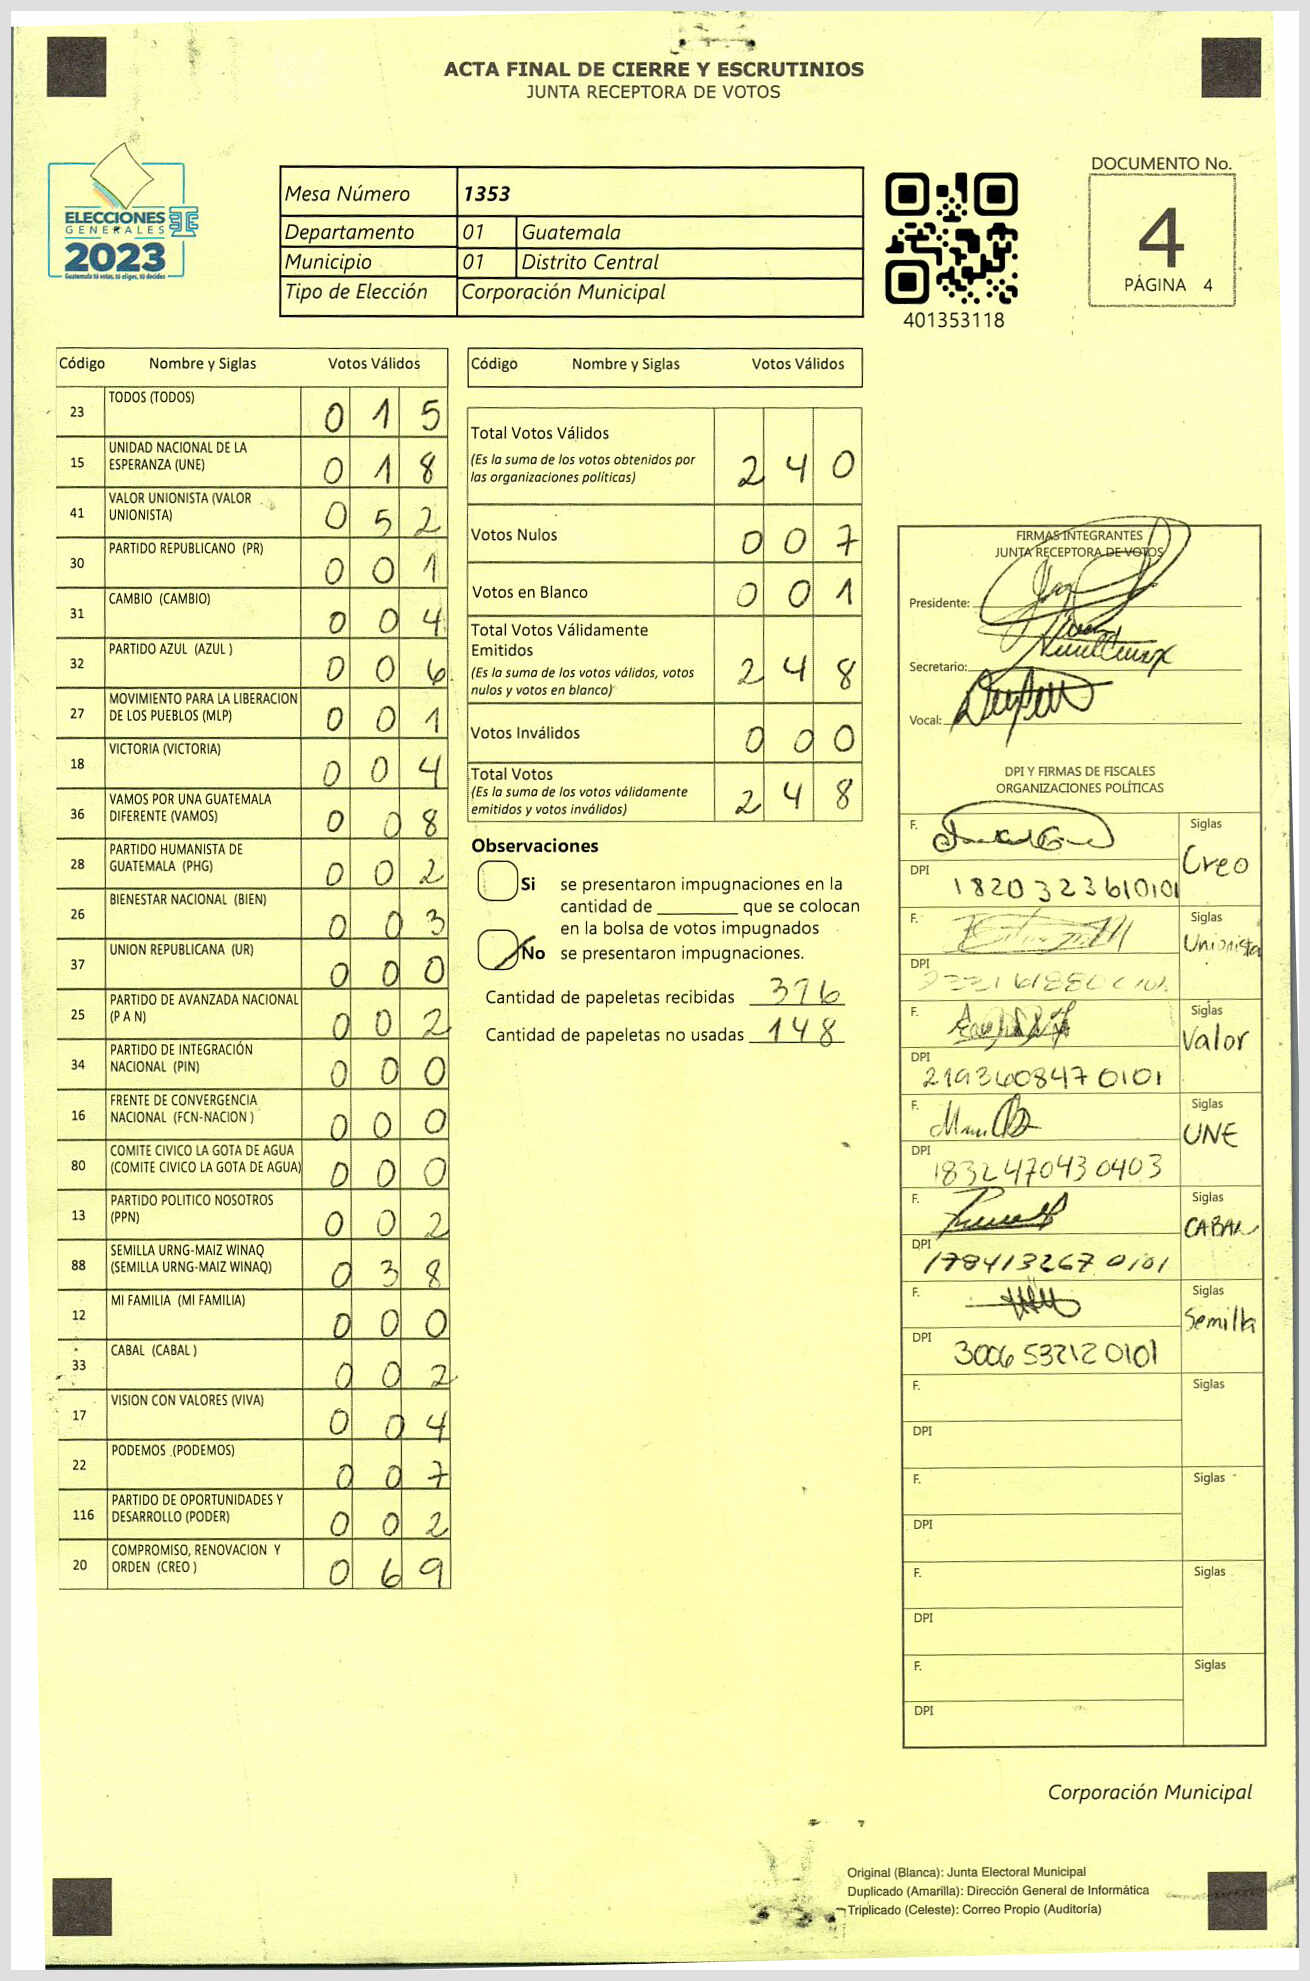 ACTA FINAL DE CIERRE Y ESCRUTINIOS
JUNTA RECEPTORA DE VOTOS
ELECCIONES
GENERALES
2023
Guatemala tú votas, tú eliges, tú decides
Mesa Número 1353
Departamento 01 Guatemala
Municipio 01 Distrito Central
Tipo de Elección Corporación Municipal
401353118
DOCUMENTO No.
4
PÁGINA 4
Código Nombre y Siglas Votos Válidos
23 TODOS (TODOS) 0 1 5
15 UNIDAD NACIONAL DE LA
ESPERANZA (UNE) 0 1 8
41 VALOR UNIONISTA (VALOR
UNIONISTA) 0 5 2
30 PARTIDO REPUBLICANO (PR) 0 0 1
31 CAMBIO (CAMBIO) 0 0 4
32 PARTIDO AZUL (AZUL ) 0 0 6
27 MOVIMIENTO PARA LA LIBERACION
DE LOS PUEBLOS (MLP) 0 0 1
18 VICTORIA (VICTORIA) 0 0 4
36 VAMOS POR UNA GUATEMALA
DIFERENTE (VAMOS) 0 0 8
28 PARTIDO HUMANISTA DE
GUATEMALA (PHG) 0 0 2
26 BIENESTAR NACIONAL (BIEN) 0 0 3
37 UNION REPUBLICANA (UR) 0 0 0
25 PARTIDO DE AVANZADA NACIONAL
(P A N) 0 0 2
34 PARTIDO DE INTEGRACIÓN
NACIONAL (PIN) 0 0 0
16 FRENTE DE CONVERGENCIA
NACIONAL (FCN-NACION ) 0 0 0
80 COMITE CIVICO LA GOTA DE AGUA
(COMITE CIVICO LA GOTA DE AGUA) 0 0 0
13 PARTIDO POLITICO NOSOTROS
(PPN) 0 0 2
88 SEMILLA URNG-MAIZ WINAQ
(SEMILLA URNG-MAIZ WINAQ) 0 3 8
12 MI FAMILIA (MI FAMILIA) 0 0 0
33 CABAL (CABAL ) 0 0 2
17 VISION CON VALORES (VIVA) 0 0 4
22 PODEMOS (PODEMOS) 0 0 7
116 PARTIDO DE OPORTUNIDADES Y
DESARROLLO (PODER) 0 0 2
20 COMPROMISO, RENOVACION Y
ORDEN (CREO ) 0 6 9
Código Nombre y Siglas Votos Válidos
Total Votos Válidos
(Es la suma de los votos obtenidos por
las organizaciones políticas) 2 4 0
Votos Nulos 0 0 7
Votos en Blanco 0 0 1
Total Votos Válidamente
Emitidos
(Es la suma de los votos válidos, votos
nulos y votos en blanco) 2 4 8
Votos Inválidos 0 0 0
Total Votos
(Es la suma de los votos válidamente
emitidos y votos inválidos) 2 4 8
Observaciones
Si se presentaron impugnaciones en la
cantidad de ________ que se colocan
en la bolsa de votos impugnados
No se presentaron impugnaciones.
Cantidad de papeletas recibidas 396
Cantidad de papeletas no usadas 148
FIRMAS INTEGRANTES
JUNTA RECEPTORA DE VOTOS
Presidente:
Secretario:
Vocal:
DPI Y FIRMAS DE FISCALES
ORGANIZACIONES POLÍTICAS
F. Siglas
Creo
DPI 1820323610101
F. Siglas
Unionista
DPI
F. Siglas
Valor
DPI 2193608470101
F. Siglas
UNE
DPI 1832470430403
F. Siglas
CABAL
DPI 1784132670101
F. Siglas
Semilla
DPI 3006532120101
F. Siglas
DPI
F. Siglas
DPI
F. Siglas
DPI
F. Siglas
DPI
Corporación Municipal
Original (Blanca): Junta Electoral Municipal
Duplicado (Amarilla): Dirección General de Informática
Triplicado (Celeste): Correo Propio (Auditoría)